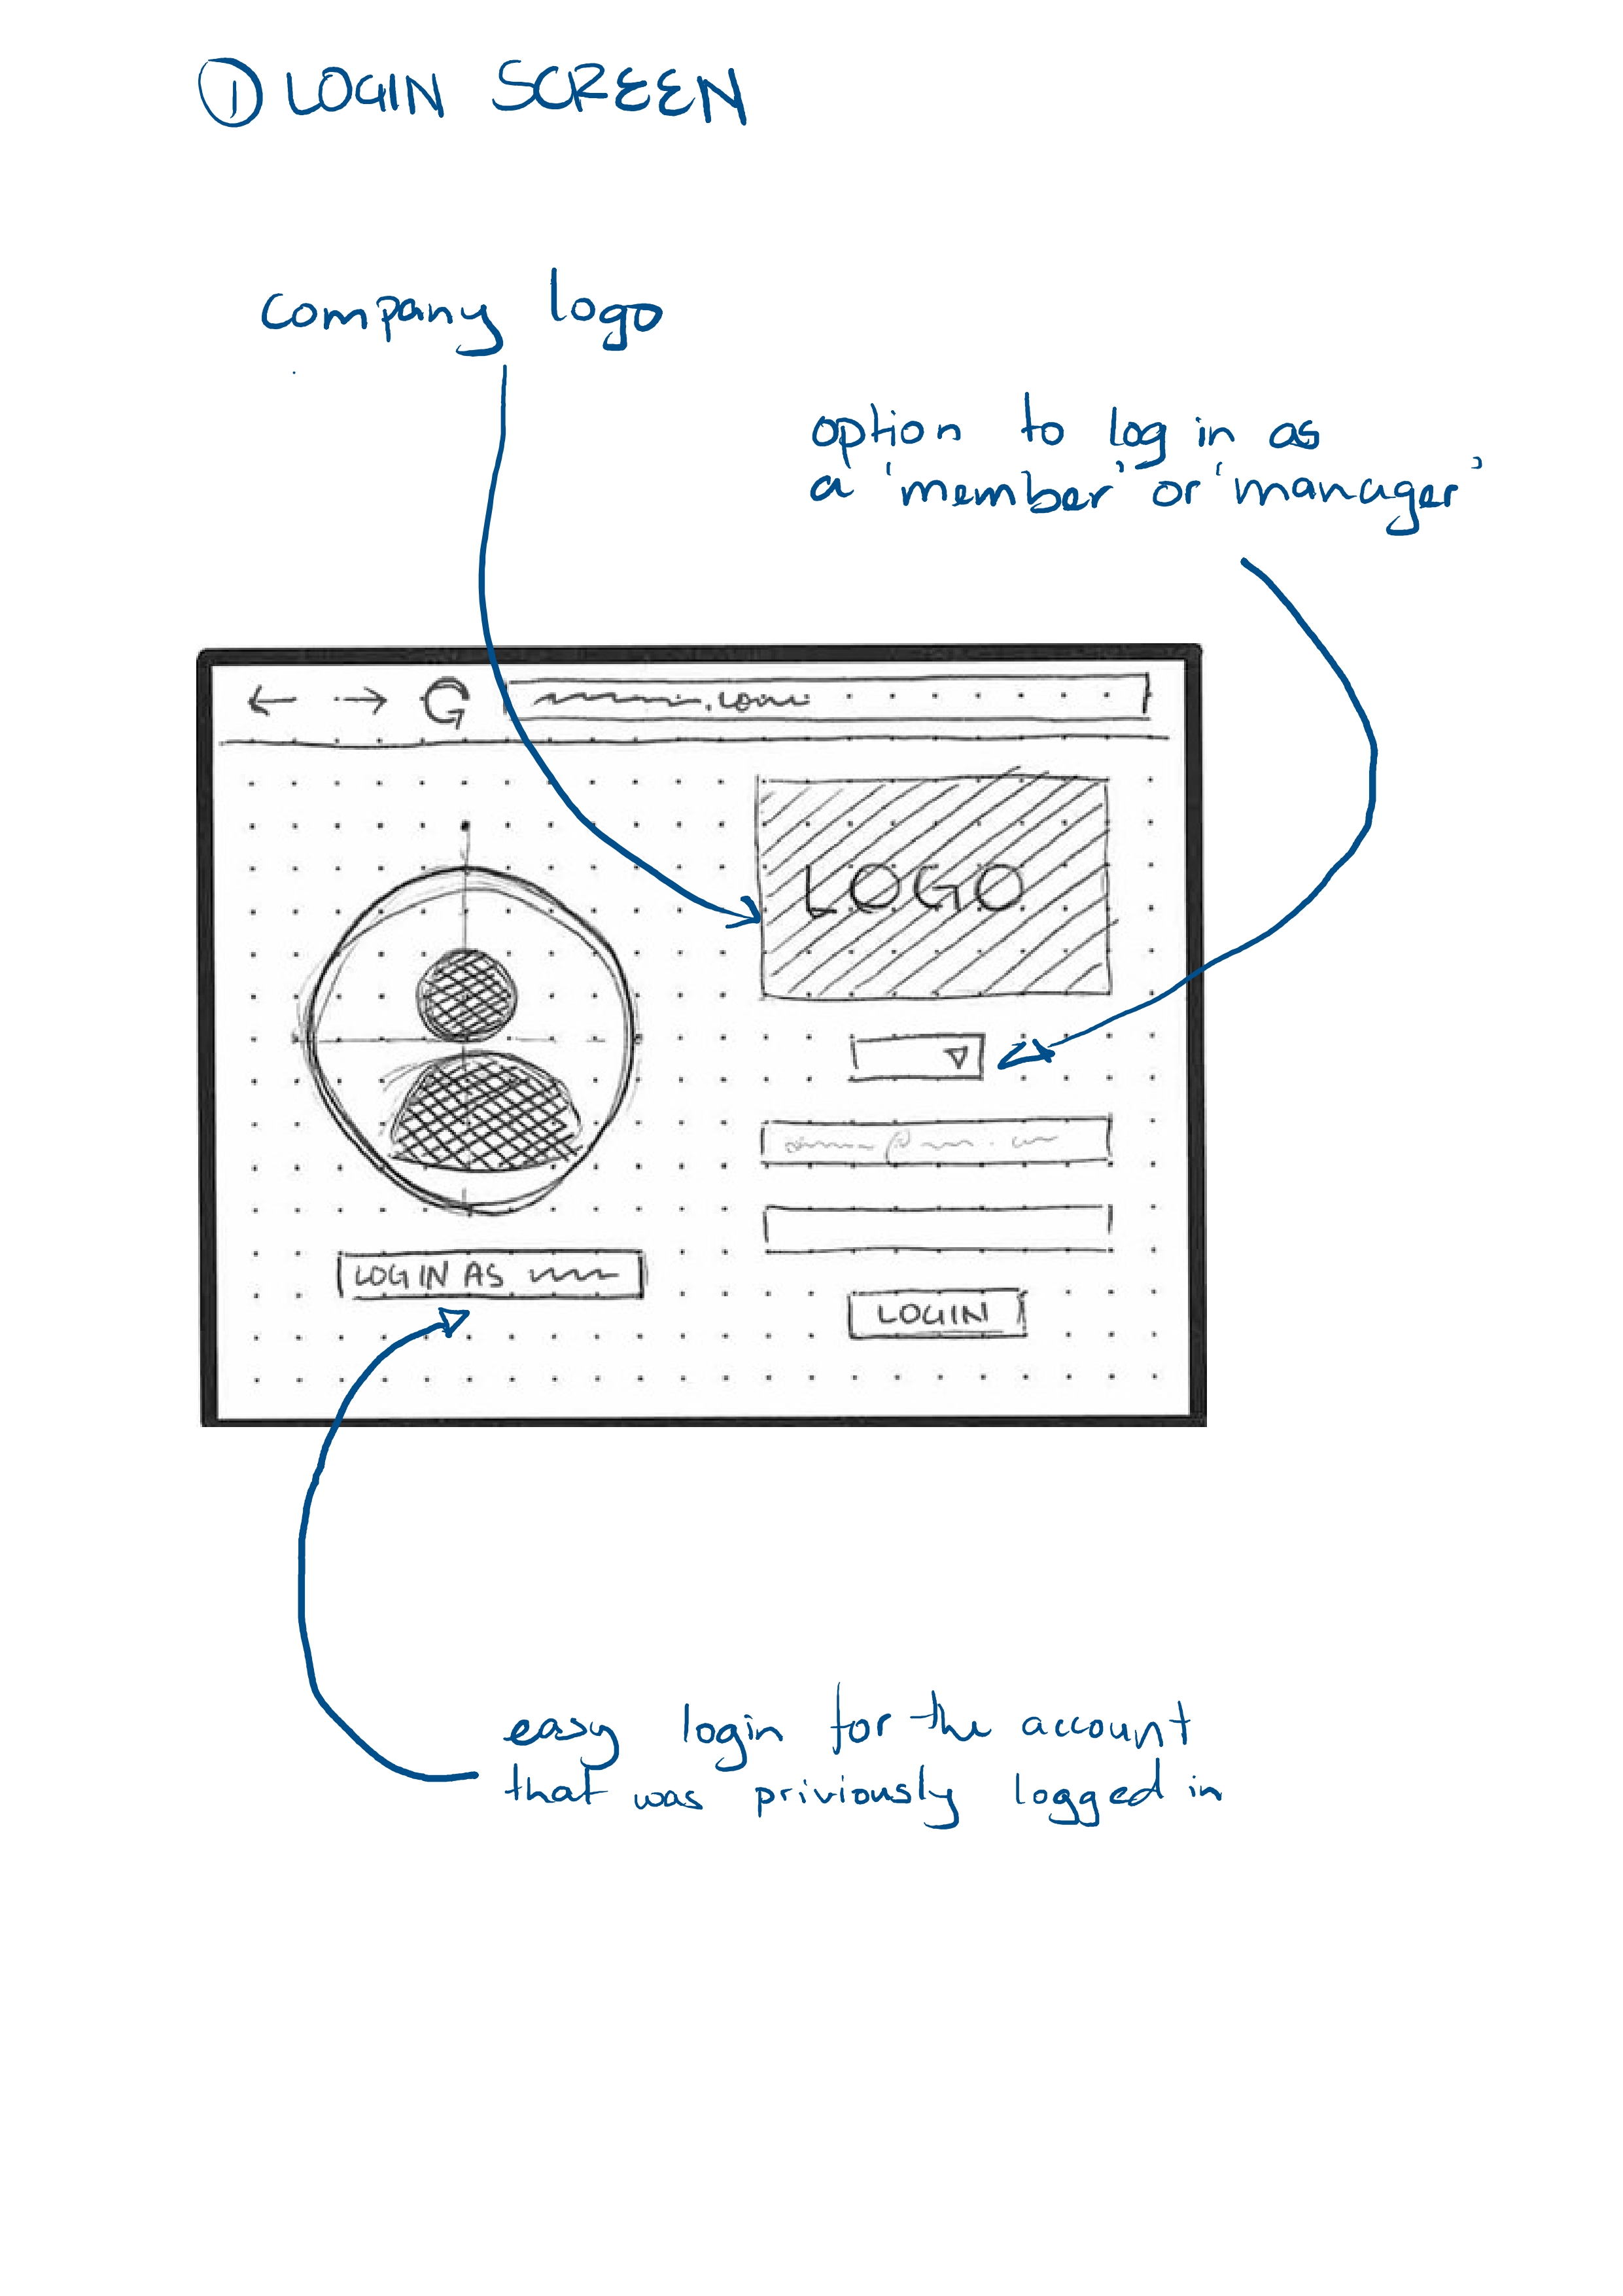 ① LOGIN SCREEN
company logo
option to log in as
a 'member' or 'manager'
.com
LOGO
LOG IN AS
LOGIN
easy login for the account
that was priviously logged in